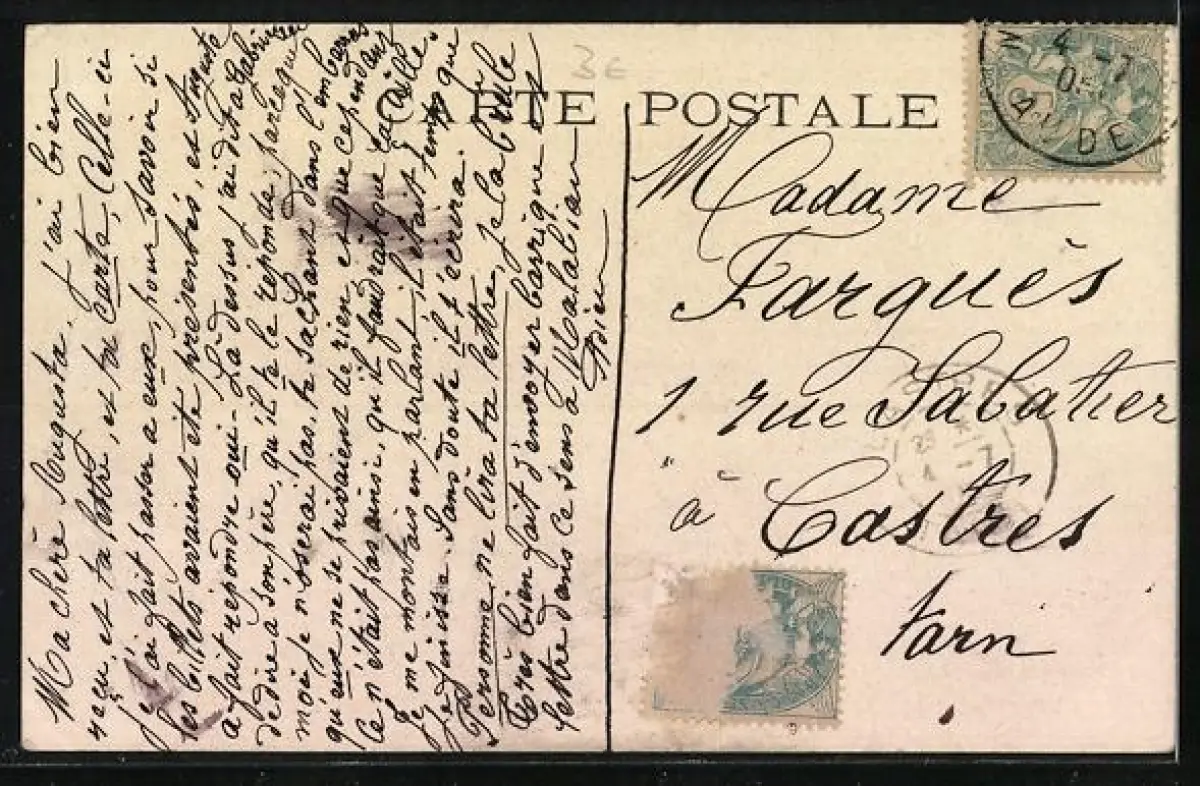 3€
CARTE POSTALE
Ma chère Augusta. J'ai bien
reçu, et ta lettre, et ta carte, Celle-ci
je l'ai fait passer a eux, pour savoir si
les billets avaient été présentés, et Augusta
a fait répondre oui - Là dessus j'ai dit a Gabriel
de dire a son père, qu'il te le réponde; parceque
moi je n'oserai pas, te sachant dans l'embarras
qu'eux ne se privaient de rien, et que cependant
ce n'était pas ainsi, qu'il faudrait que ça aille.
je me montais en parlant, il était temps que
je finisse. Sans doute il t'écrira.
Personne ne lira ta lettre, je la brule
Très bien fait d'envoyer barrique et
lettre dans ce sens à Malalian
Adieu
Madame
Farguès
1 rue Sabatier
à
Castres
Tarn
4 -7
05
AUDE